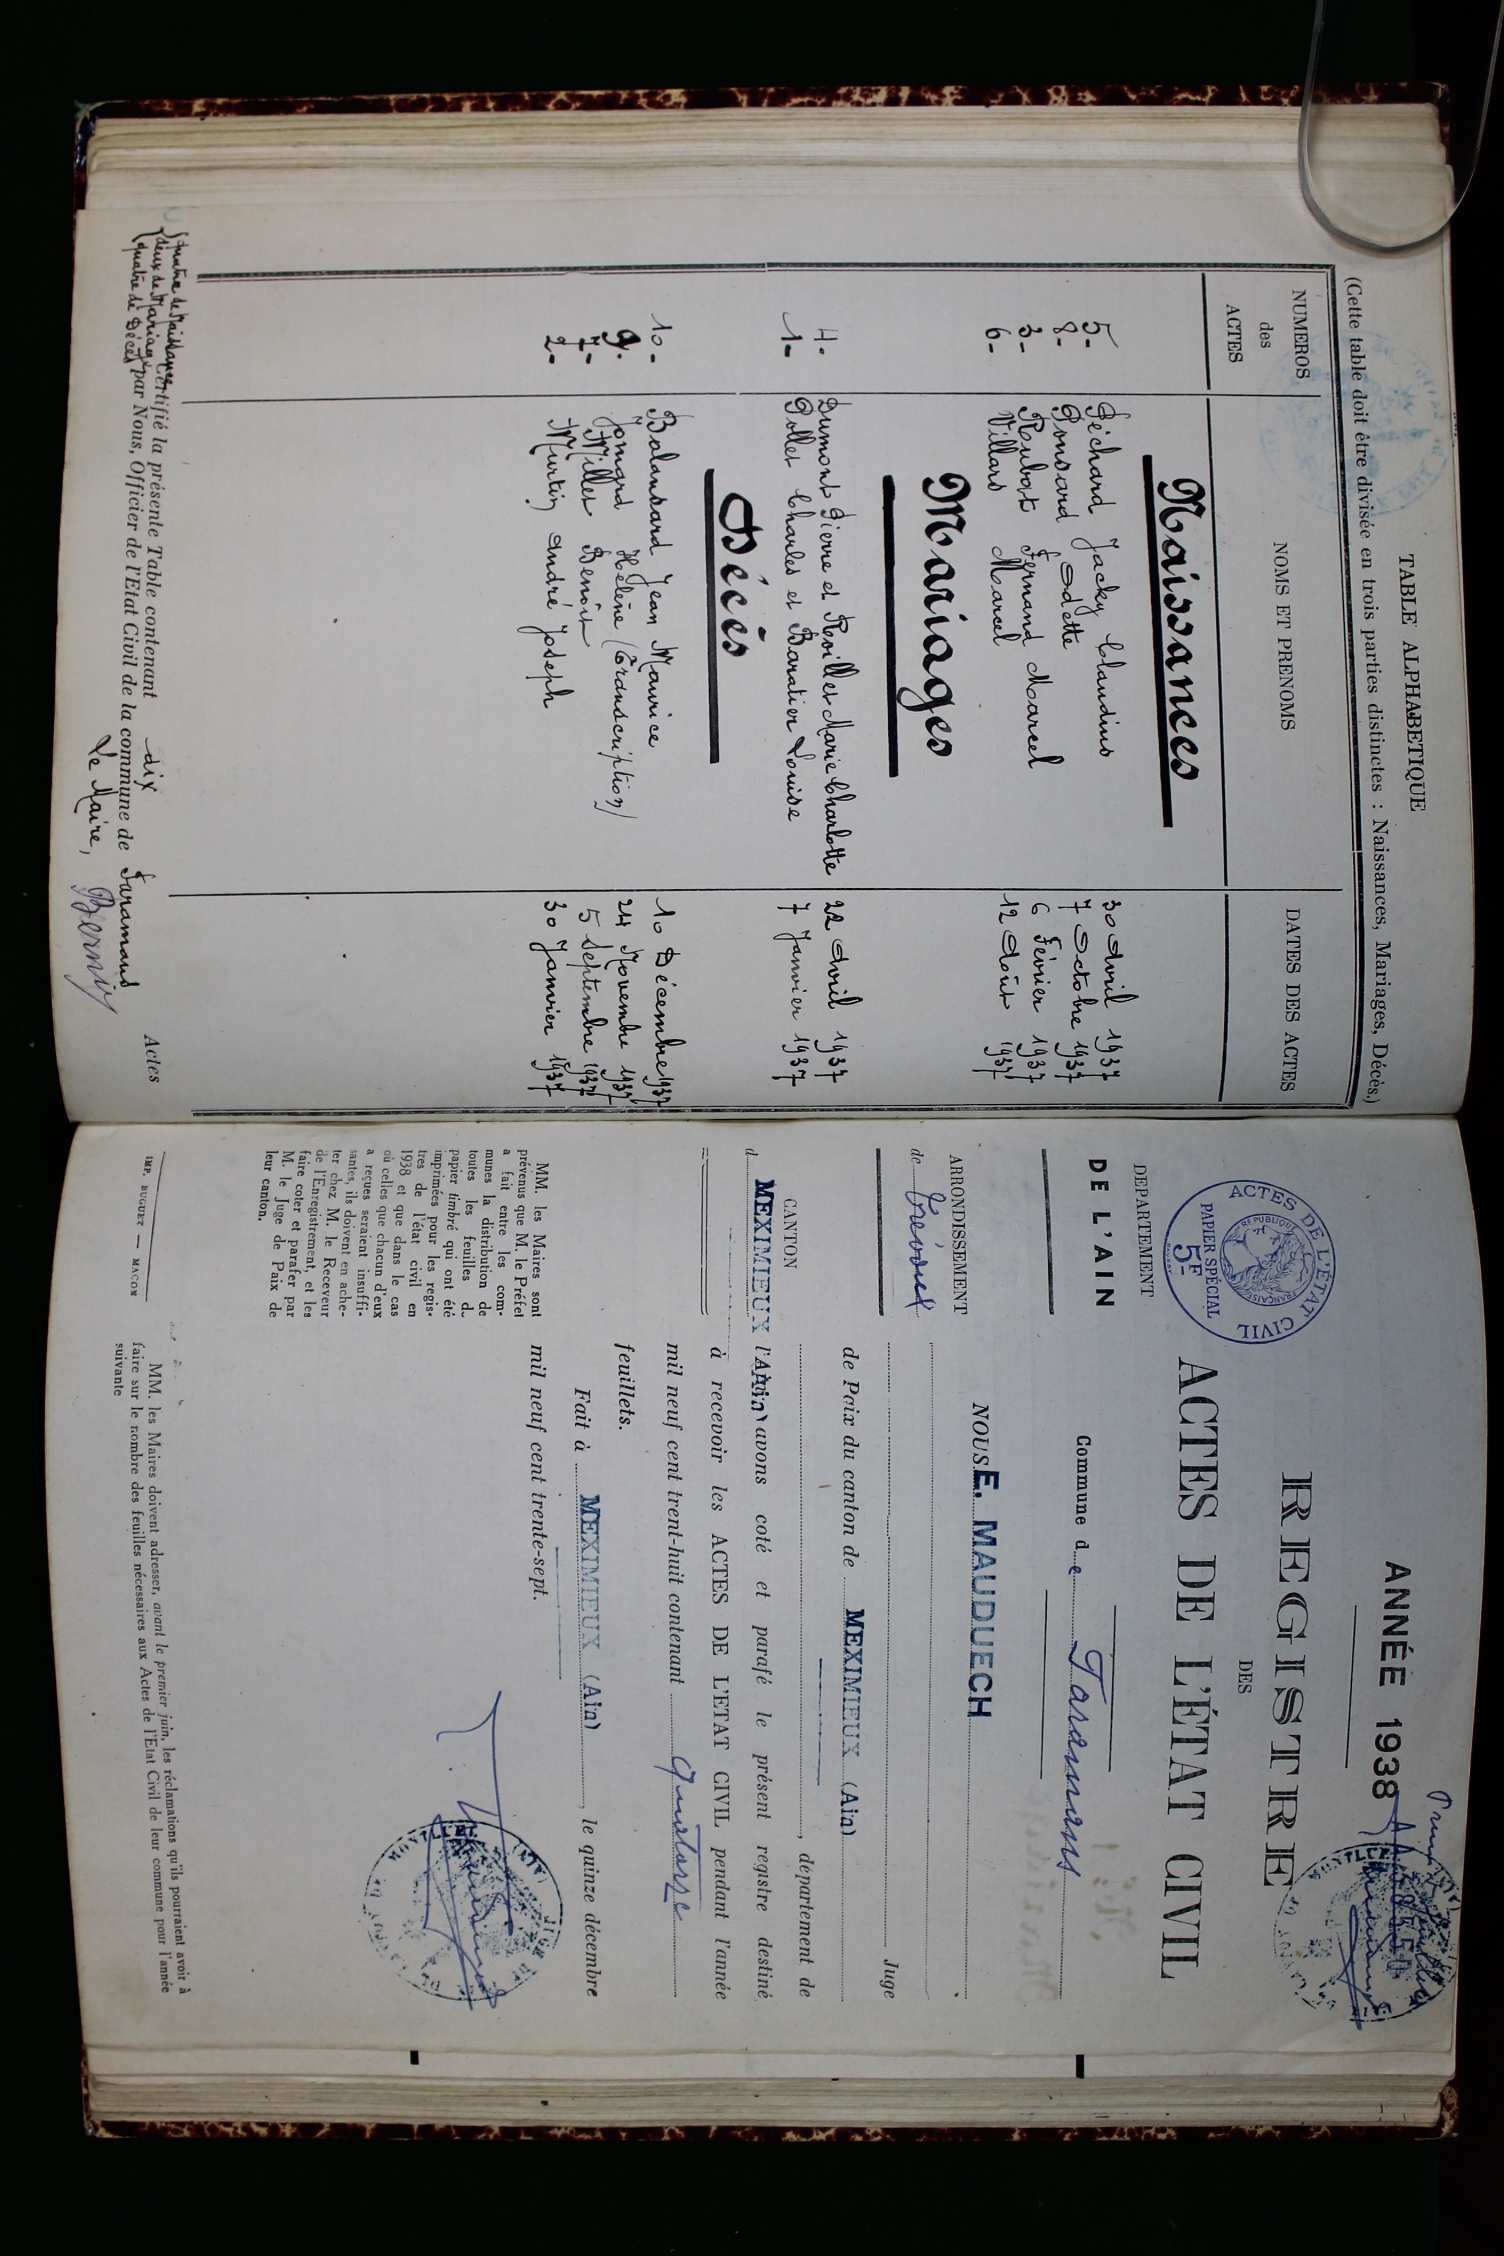 TABLE ALPHABETIQUE
(Cette table doit être divisée en trois parties distinctes : Naissances, Mariages, Décès.)
NUMEROS des ACTES NOMS ET PRENOMS DATES DES ACTES
Naissances
5- Péchard Jacky Claudius 30 Avril 1937
8- Ponsard Odette 7 Octobre 1937
3- Rubat Fernand Marcel 6 Février 1937
6- Villars Marcel 12 Août 1937
Mariages
4- Dumont Pierre et Revillet Marie Charlotte 22 Avril 1937
1- Pollet Charles et Baratier Louise 7 Janvier 1937
Décès
10- Balansard Jean Maurice 10 Décembre 1937
9- Joingrd Hélène (Transcription) 24 Novembre 1937
7- Millet Benoît 5 Septembre 1937
2- Murtin André Joseph 30 Janvier 1937
quatre de Naissances
deux de Mariages
quatre de Décès
Certifié la présente Table contenant dix Actes
par Nous, Officier de l'Etat Civil de la commune de Faramans
Le Maire,
ANNÉE 1938
REGISTRE
DES
ACTES DE L'ÉTAT CIVIL
ACTES DE L'ÉTAT CIVIL
REPUBLIQUE FRANÇAISE
PAPIER SPÉCIAL
5F
DEPARTEMENT
DE L'AIN
ARRONDISSEMENT
de Trévoux
CANTON
d MEXIMIEUX
MM. les Maires sont
prévenus que M. le Préfet
a fait entre les com-
munes la distribution de
toutes les feuilles d
papier timbré qui ont été
imprimées pour les regis-
tres de l'état civil en
1938 et que dans le cas
où celles que chacun d'eux
a reçues seraient insuffi-
santes, ils doivent en ache-
ter chez M. le Receveur
de l'Enregistrement, et les
faire coter et parafer par
M. le Juge de Paix de
leur canton.
IMP. BUGUET — MACON
Commune de Faramans
NOUS E. MAUDUECH
Juge
de Paix du canton de MEXIMIEUX (Ain)
, département de
l'Ain avons coté et parafé le présent registre destiné
à recevoir les ACTES DE L'ETAT CIVIL pendant l'année
mil neuf cent trent-huit contenant quatorze
feuillets.
Fait à MEXIMIEUX (Ain), le quinze décembre
mil neuf cent trente-sept.
MM. les Maires doivent adresser, avant le premier juin, les réclamations qu'ils pourraient avoir à
faire sur le nombre des feuilles nécessaires aux Actes de l'Etat Civil de leur commune pour l'année
suivante